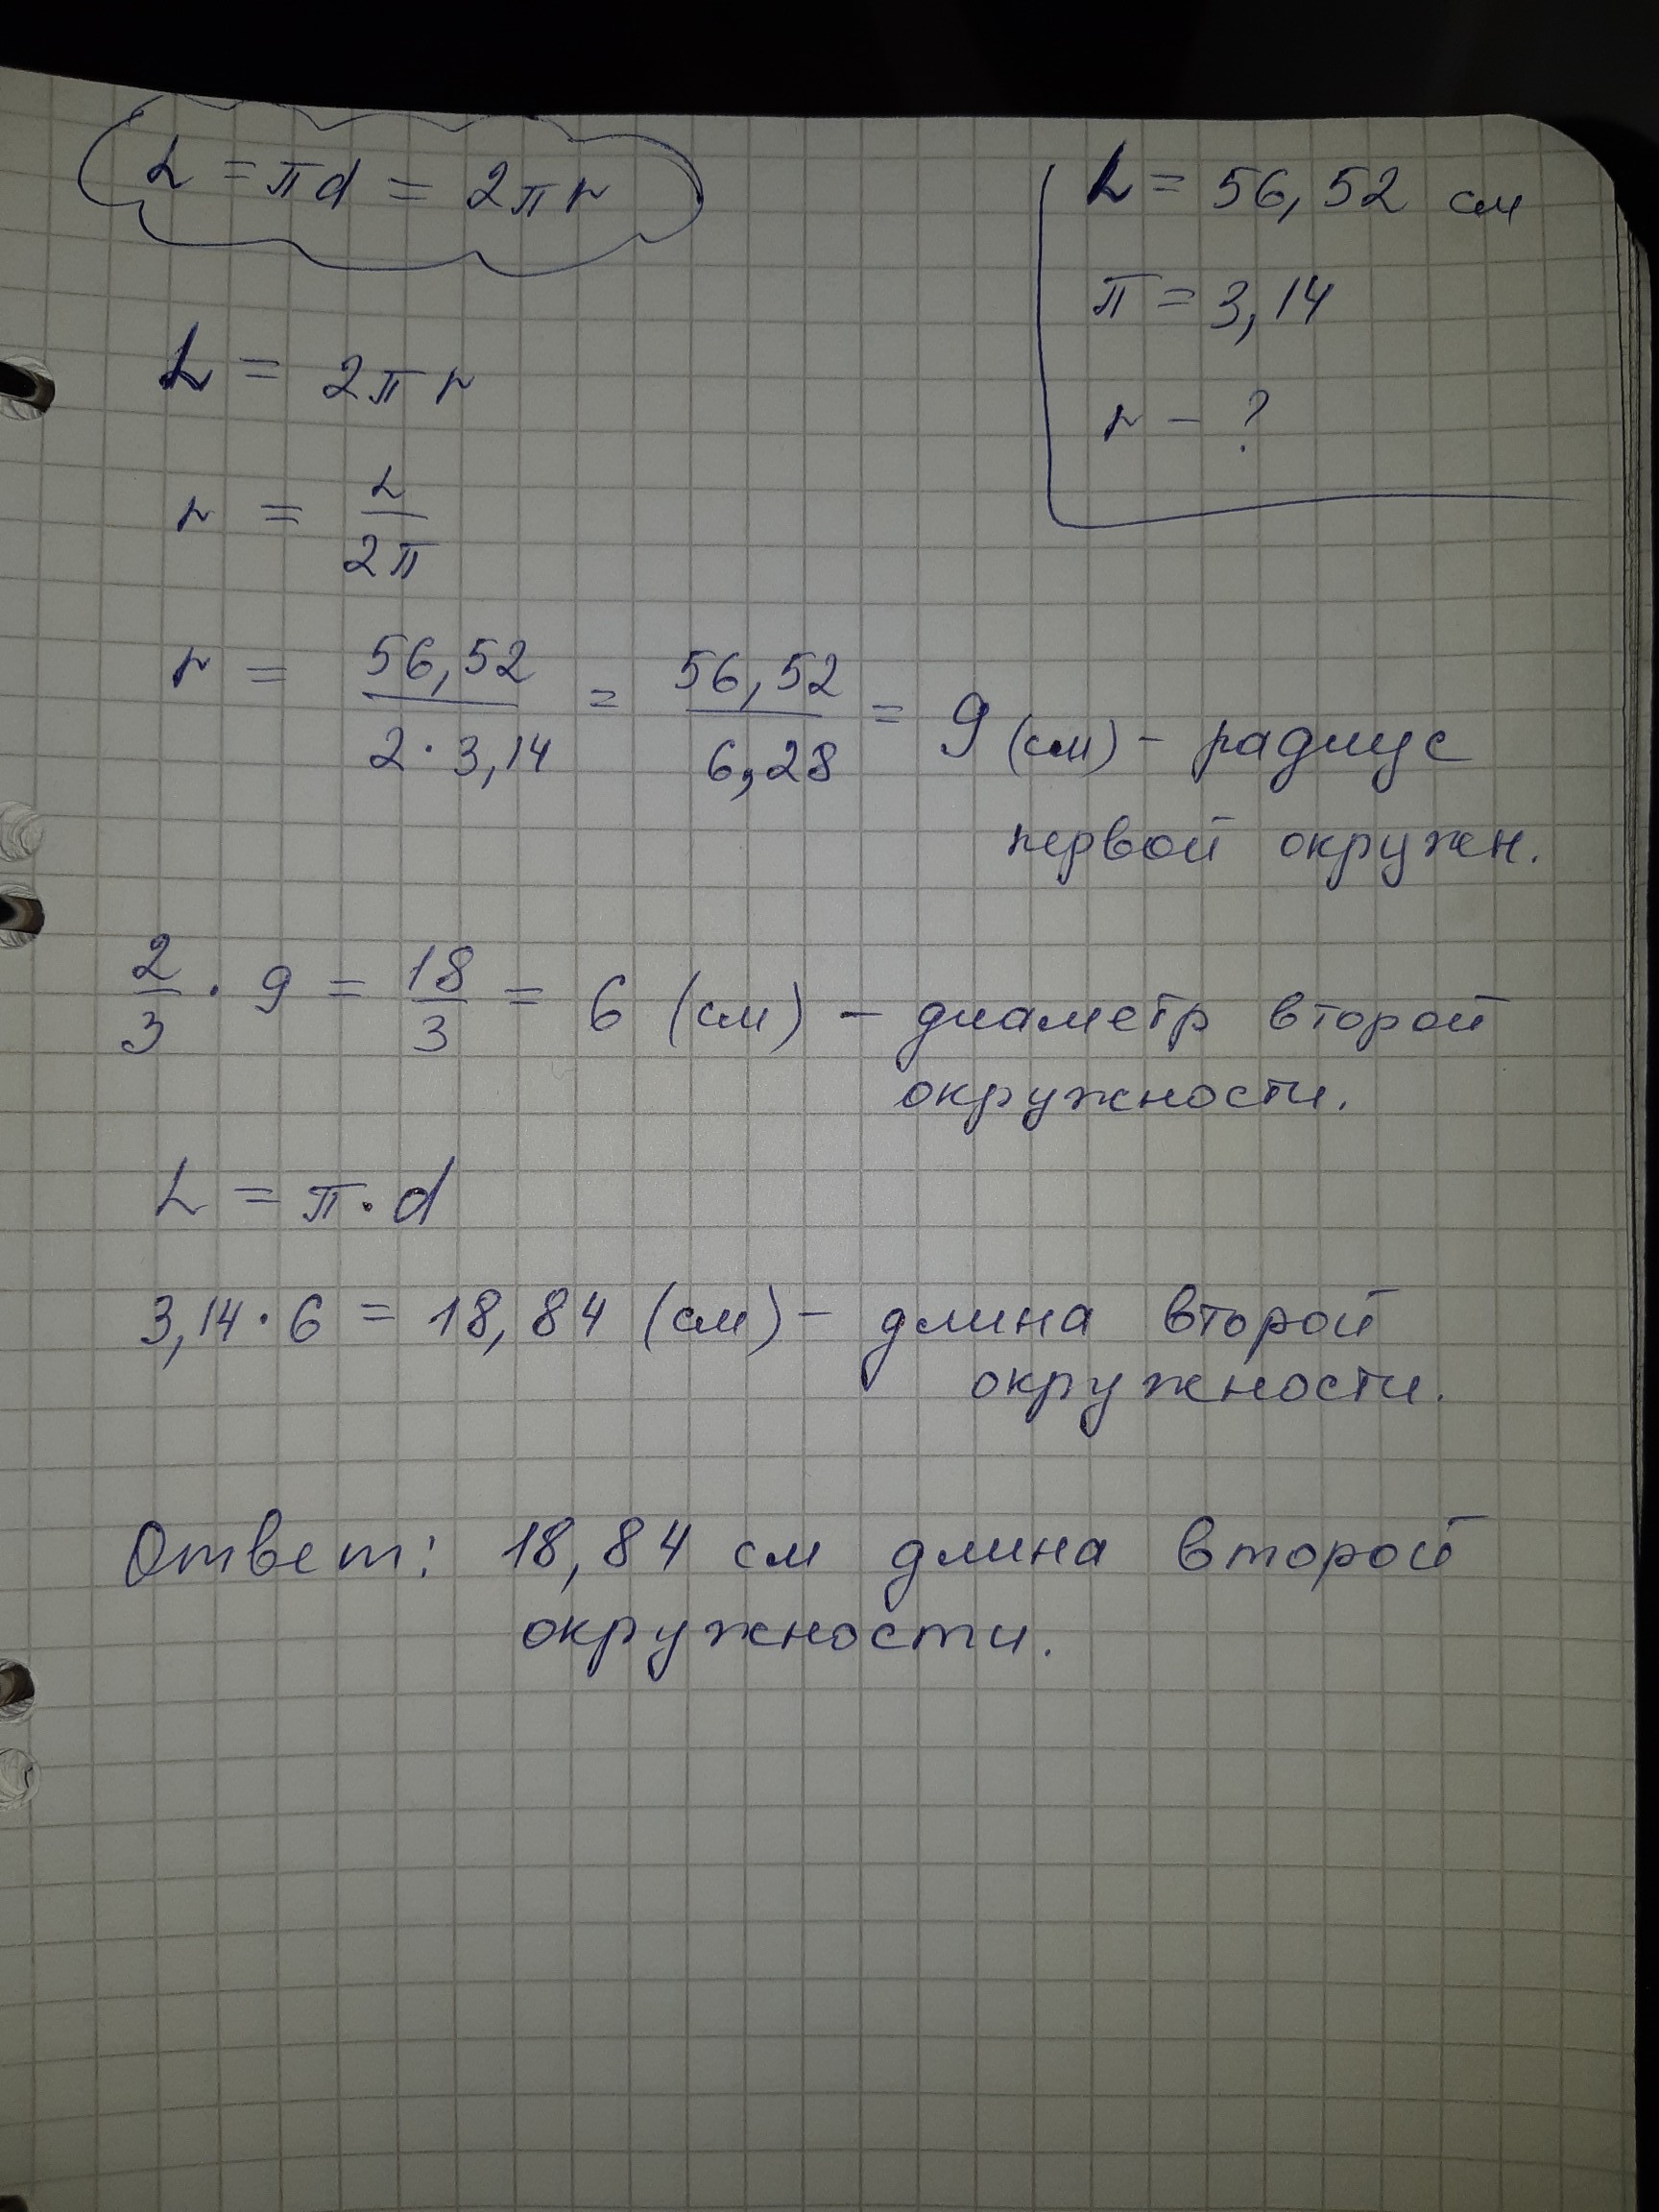 L = πd = 2πr
L = 56,52 см
π = 3,14
r - ?
L = 2πr
r = L/2π
r = 56,52/2·3,14 = 56,52/6,28 = 9 (см) - радиус
первой окружн.
2/3 · 9 = 18/3 = 6 (см) - диаметр второй
окружности.
L = π·d
3,14·6 = 18,84 (см) - длина второй
окружности.
Ответ: 18,84 см длина второй
окружности.